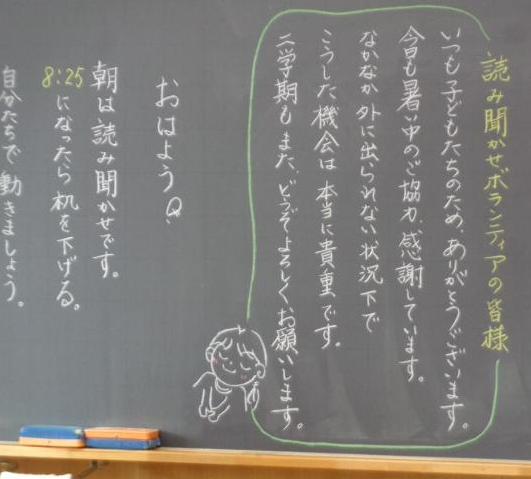 読み聞かせボランティアの皆様
いつも子どもたちのため、ありがとうございます。
今日も暑い中のご協力、感謝しています。
なかなか外に出られない状況下で
こうした機会は本当に貴重です。
二学期もまた、どうぞよろしくお願いします。
おはよう
朝は読み聞かせです。
8:25になったら机を下げる。
自分たちで動きましょう。